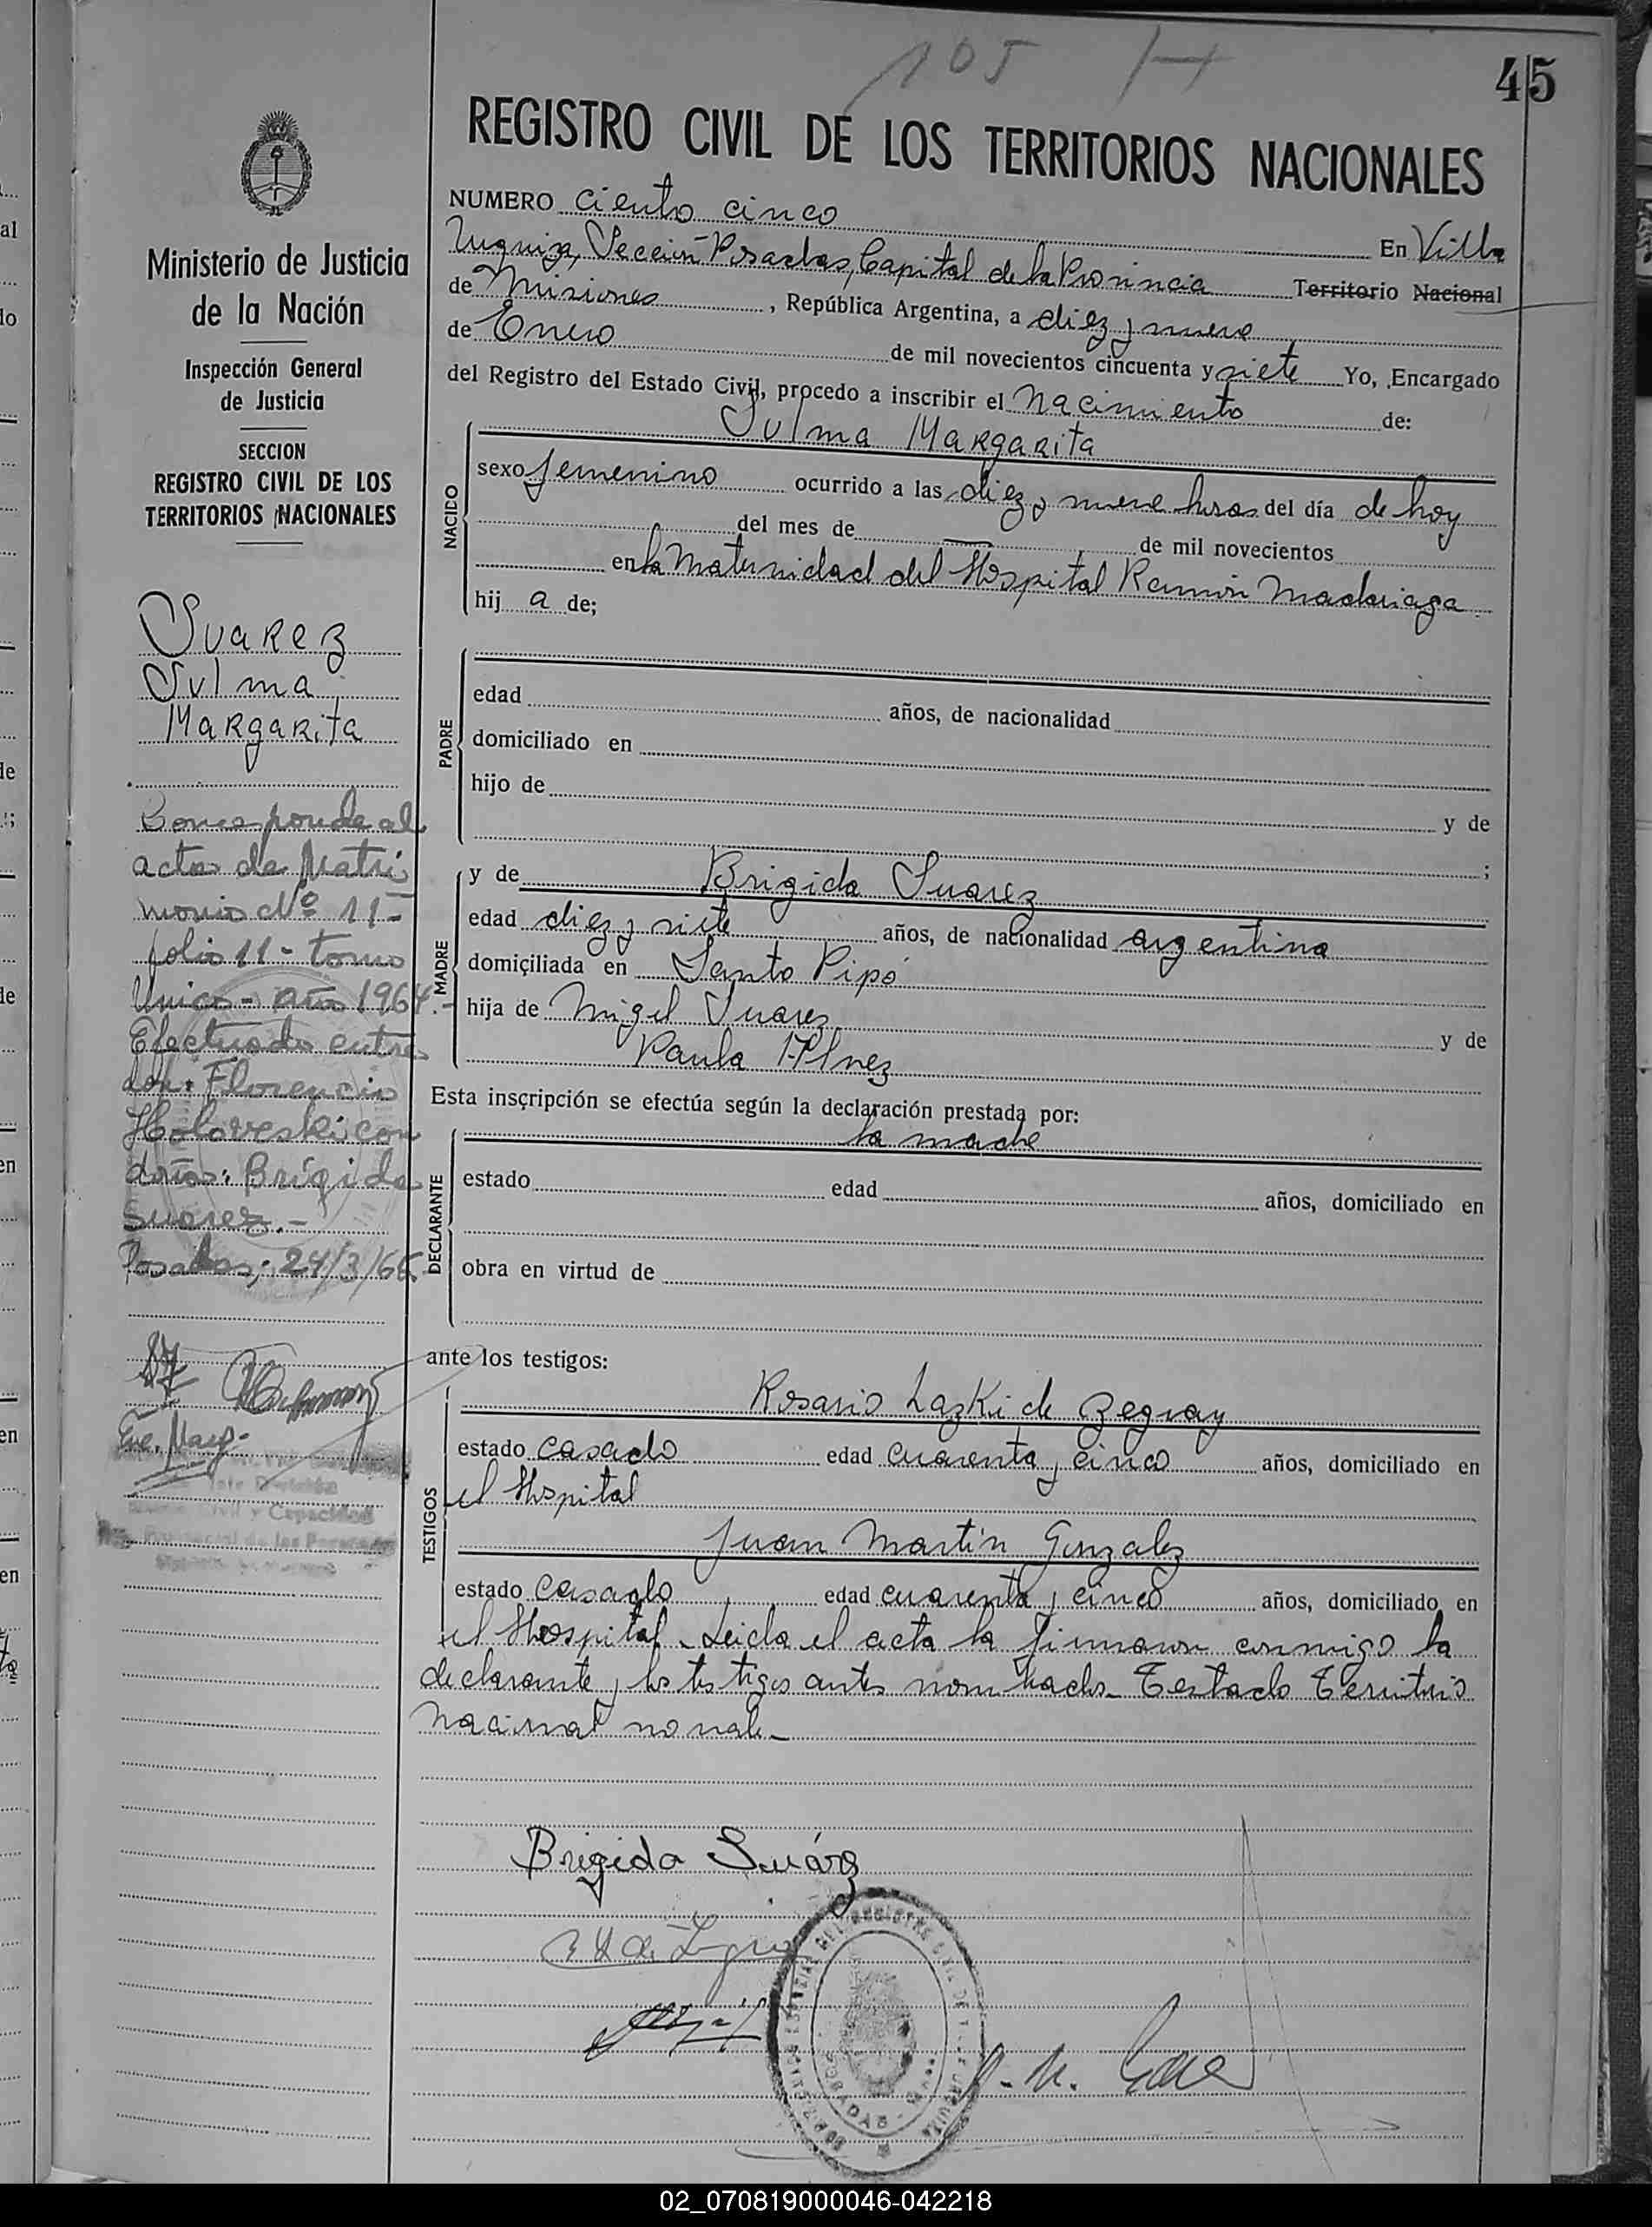 105 H
45
REGISTRO CIVIL DE LOS TERRITORIOS NACIONALES
NUMERO ciento cinco En Villa
Urquiza, Sección Posadas, Capital de la Provincia Territorio Nacional
de Misiones, República Argentina, a diez y nueve
de Enero de mil novecientos cincuenta y siete Yo, Encargado
del Registro del Estado Civil, procedo a inscribir el nacimiento de:
Sulma Margarita
NACIDO
sexo femenino ocurrido a las diez y nueve horas del día de hoy
del mes de — de mil novecientos
en la Maternidad del Hospital Ramón Madariaga
hij a de;
PADRE
edad años, de nacionalidad
domiciliado en
hijo de y de
;
MADRE
y de Brigida Suarez
edad diez y siete años, de nacionalidad argentina
domiciliada en Santo Pipó
hija de Migel Suarez y de
Paula
Esta inscripción se efectúa según la declaración prestada por:
la madre
DECLARANTE
estado edad años, domiciliado en
obra en virtud de
ante los testigos:
TESTIGOS
Rosario Lazki de
estado casado edad cuarenta y cinco años, domiciliado en
el Hospital
Juan Martin Gonzalez
estado casado edad cuarenta y cinco años, domiciliado en
el Hospital. Leida el acta la firmaron conmigo la
declarante y los testigos antes nombrados. Testado Territorio
Nacional no vale.
Brigida Suárez
Ministerio de Justicia
de la Nación
Inspección General
de Justicia
SECCION
REGISTRO CIVIL DE LOS
TERRITORIOS NACIONALES
Suarez
Sulma
Margarita
Corresponde al
acta de Matri
monio Nº 11-
folio 11 - tomo
Unico - año 1964.-
Efectuado entre
don: Florencio
Holoveski con
doña: Brígida
Suarez.-
Posadas, 24/3/66
02_070819000046-042218